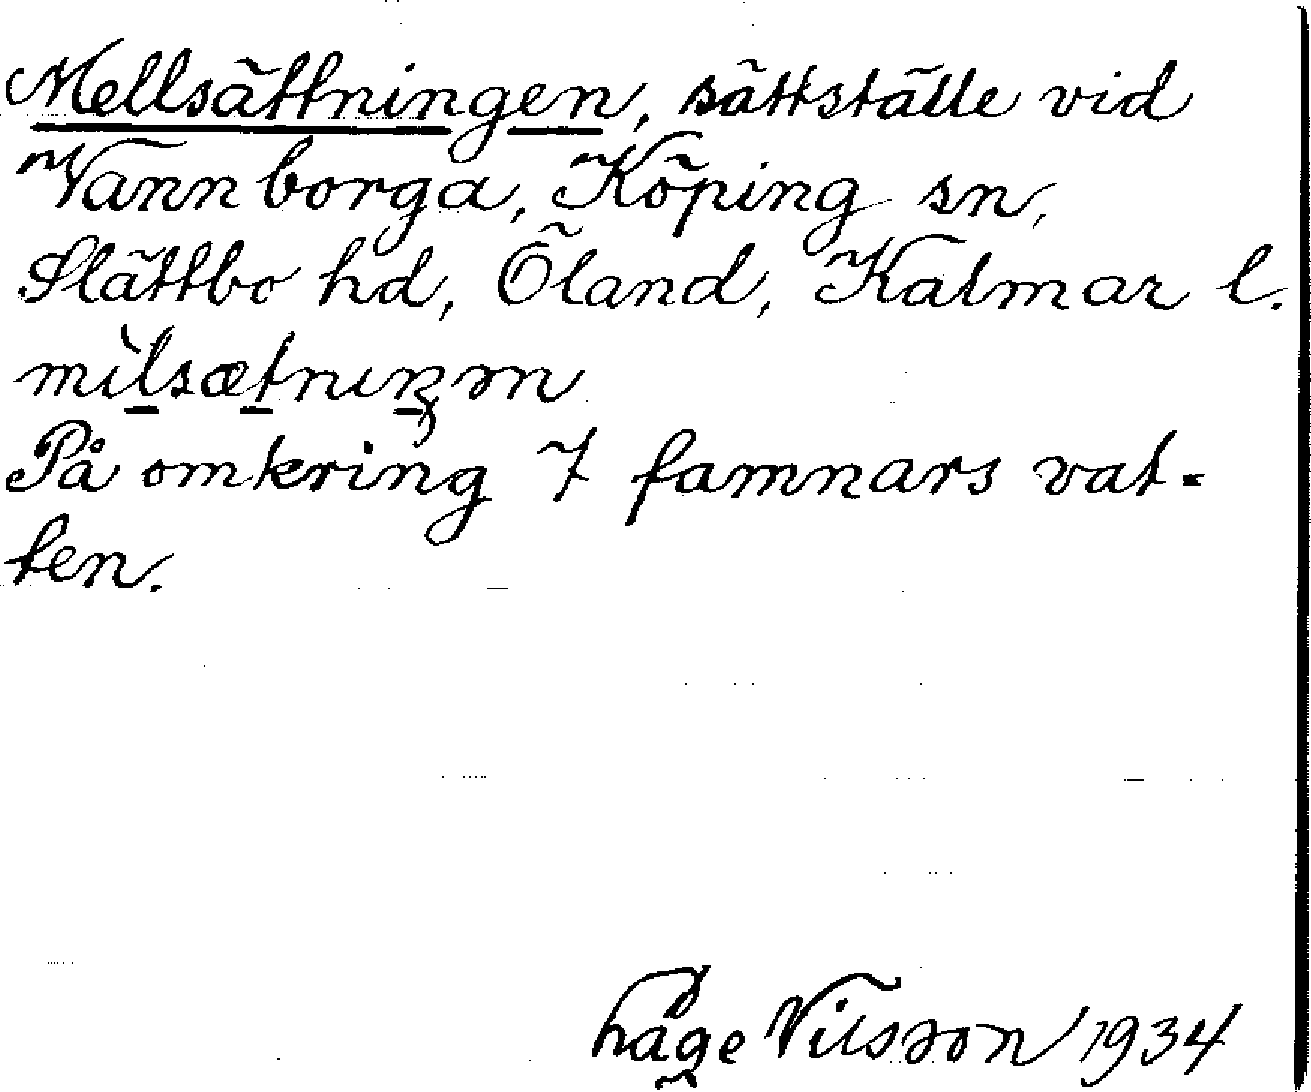 Mellsättningen, sättställe vid
Vannborga, Köping sn,
Slättbo hd, Öland, Kalmar l.
På omkring 7 famnars vat-
ten.
Håge Nilsson 1934